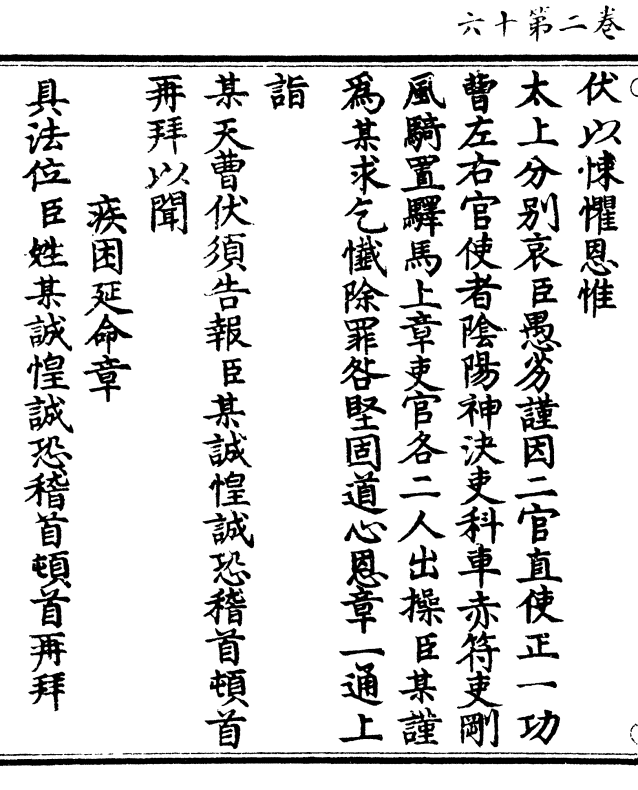 六十第二卷
伏以悚懼恩惟
太上分别哀臣愚劣謹因二官直使正一功
曹左右官使者陰陽神決吏科車赤符吏剛
風騎置驛馬上章吏官各二人出操臣某謹
爲某求乞懺除罪咎堅固道心恩章一通上
詣
某天曹伏須告報臣某誠惶誠恐稽首頓首
再拜以聞
疾困延命章
具法位臣姓某誠惶誠恐稽首頓首再拜